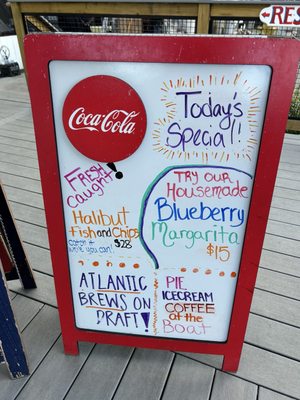 RES
Coca-Cola
Today's
Special!
Fresh
caught!
Halibut
Fish and Chips
$28
TRY OUR
Housemade
Blueberry
Margarita
$15
ATLANTIC
BREWS ON
DRAFT!
PIE
ICECREAM
COFFEE
at the
Boat